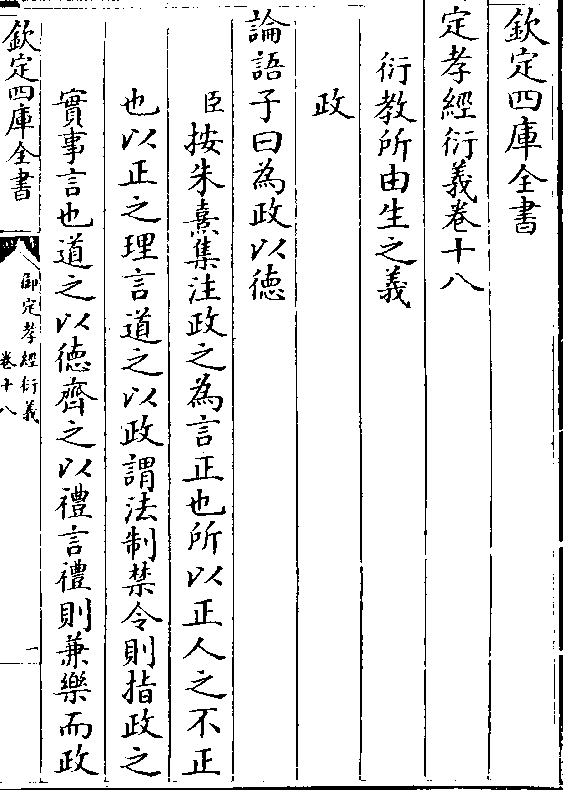 欽定四庫全書
定孝經衍義卷十八
衍教所由生之義
政
論語子曰為政以德
臣按朱熹集注政之為言正也所以正人之不正
也以正之理言道之以政謂法制禁令則指政之
實事言也道之以德齊之以禮言禮則兼樂而政
欽定四庫全書
御定孝經衍義
卷十八
一